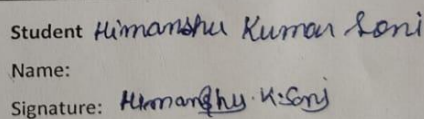 Student Himanshu Kumar Soni
Name:
Signature: Himanshu. K. Soni